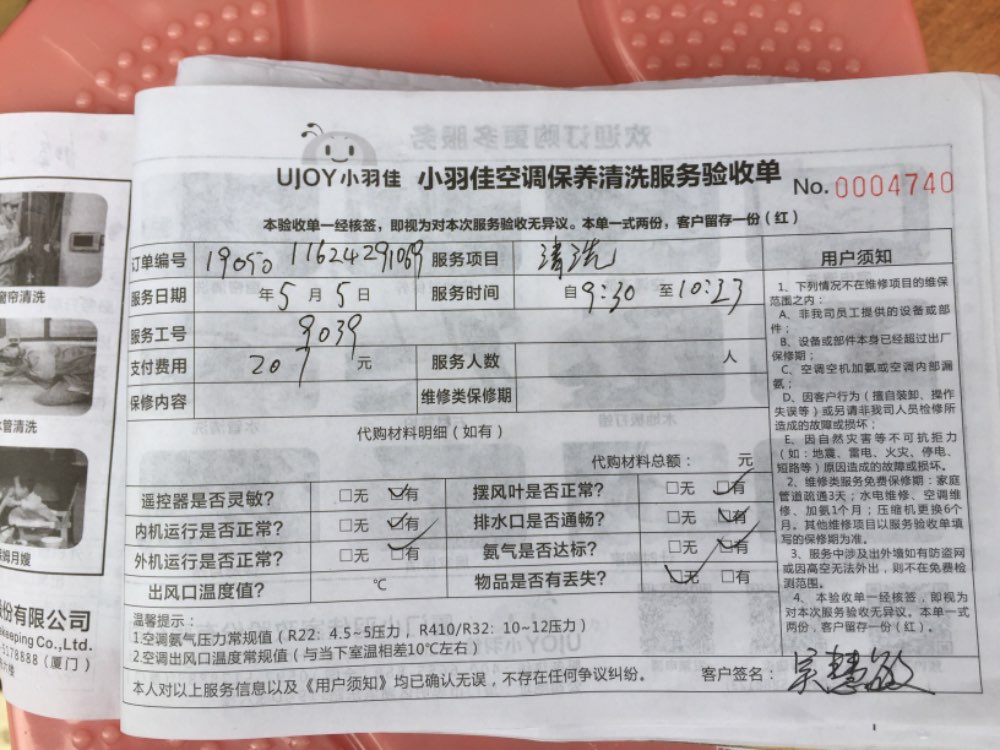 UJOY小羽佳 小羽佳空调保养清洗服务验收单 No. 0004740
本验收单一经核签，即视为对本次服务验收无异议。本单一式两份，客户留存一份（红）
订单编号 19050 11624291069 服务项目 清洗
服务日期 年5月5日 服务时间 自9:30 至10:23
服务工号 9039
支付费用 207 元 服务人数 人
保修内容 维修类保修期
代购材料明细（如有）
代购材料总额： 元
遥控器是否灵敏？ □无 ☑有 摆风叶是否正常？ □无 ☑有
内机运行是否正常？ □无 ☑有 排水口是否通畅？ □无 ☑有
外机运行是否正常？ □无 ☑有 氨气是否达标？ □无 ☑有
出风口温度值？ ℃ 物品是否有丢失？ ☑无 □有
温馨提示：
1.空调氨气压力常规值（R22：4.5~5压力，R410/R32：10~12压力）
2.空调出风口温度常规值（与当下室温相差10℃左右）
本人对以上服务信息以及《用户须知》均已确认无误，不存在任何争议纠纷。 客户签名：
用户须知
1、下列情况不在维修项目的维保
范围之内：
A、非我司员工提供的设备或部
件；
B、设备或部件本身已经超过出厂
保修期；
C、空调空机加氨或空调内部漏
氨；
D、因客户行为（擅自装卸、操作
失误等）或另请非我司人员检修所
造成的故障或损坏；
E、因自然灾害等不可抗拒力
（如：地震、雷电、火灾、停电、
短路等）原因造成的故障或损坏。
2、维修类服务免费保修期：家庭
管道疏通3天；水电维修、空调维
修、加氨1个月；压缩机更换6个
月。其他维修项目以服务验收单填
写的保修期为准。
3、服务中涉及出外墙如有防盗网
或因高空无法外出，则不在免费检
测范围。
4、本验收单一经核签，即视为
对本次服务验收无异议。本单一式
两份，客户留存一份（红）。
窗帘清洗
水管清洗
保姆月嫂
份有限公司
keeping Co.,Ltd.
5178888（厦门）